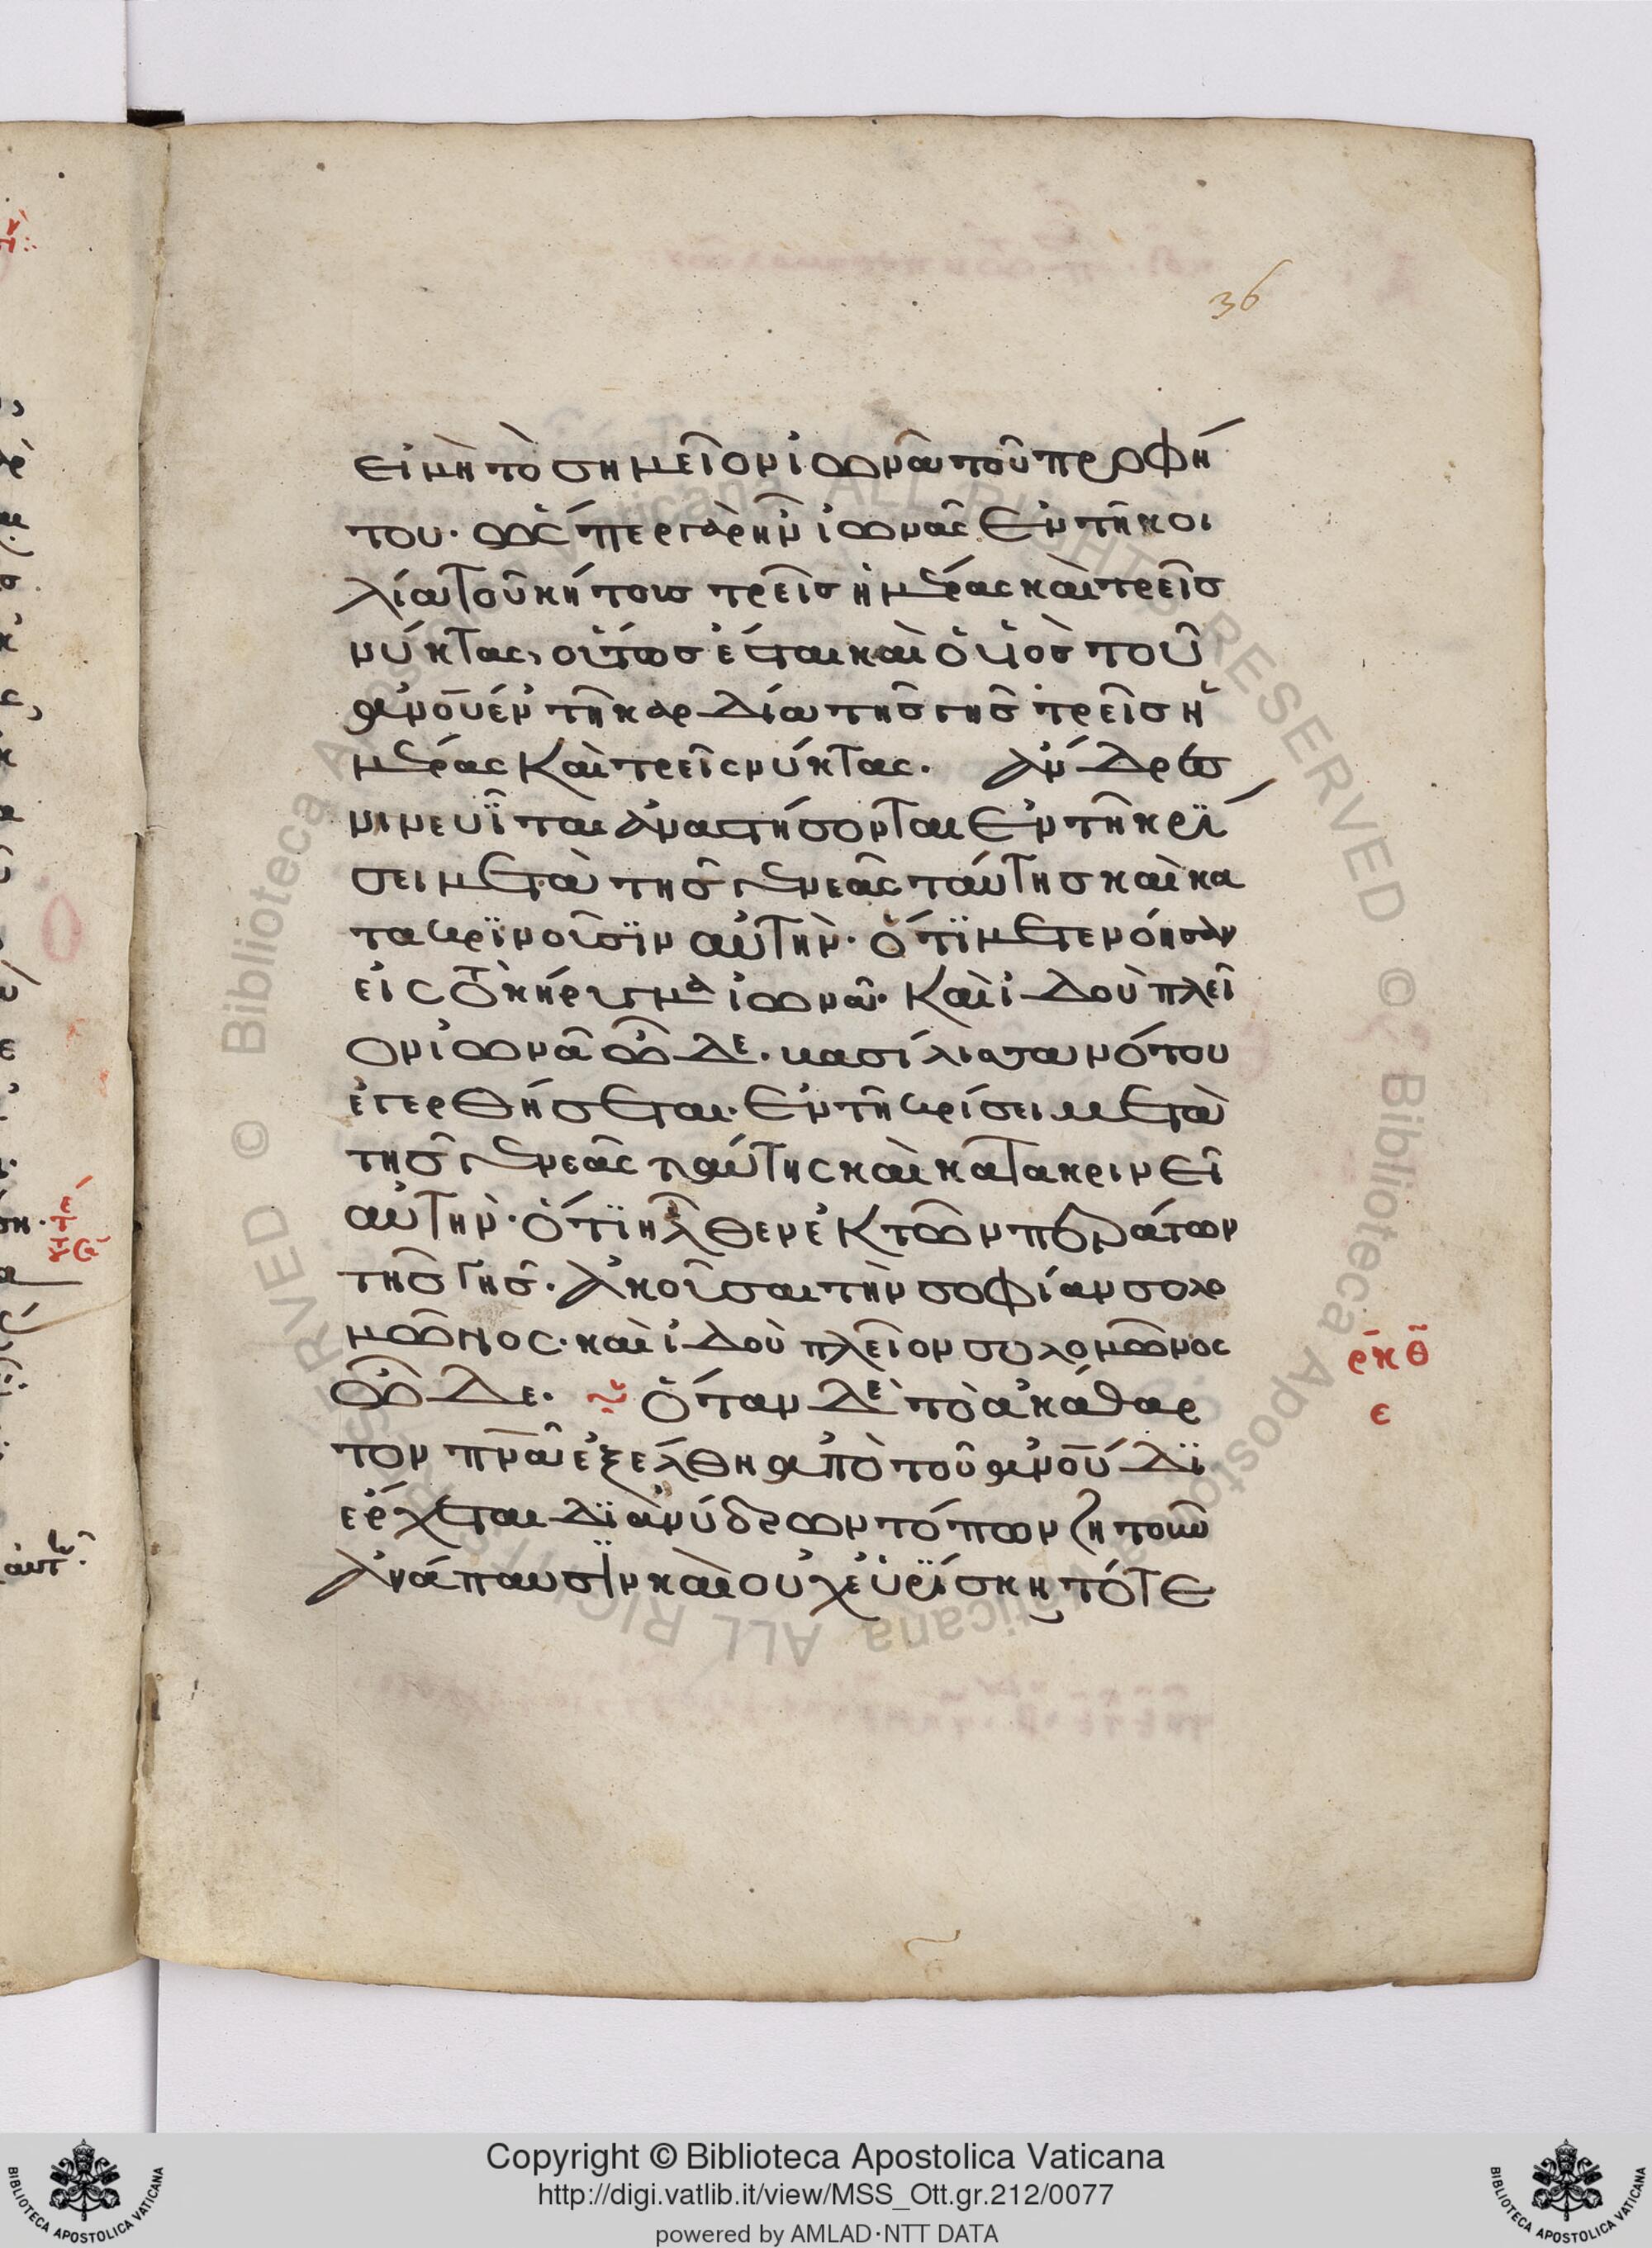 36
εἰ μὴ τὸ σημεῖον ἰωνᾶ τοῦ προφή
του· ὥσπερ γὰρ ἦν ἰωνᾶς ἐν τῆ κοι
λία τοῦ κήτους τρεῖς ἡμέρας καὶ τρεῖς
νύκτας, οὕτως ἔσται καὶ ὁ υἱὸς τοῦ
ἀνου ἐν τῆ καρδία τῆς γῆς τρεῖς ἡ
μέρας καὶ τρεῖς νύκτας. ἄνδρες
νινευῖται ἀναστήσονται ἐν τῆ κρί
σει μετὰ τῆς γενεᾶς ταύτης καὶ κα
τακρινοῦσϊν αὐτήν· ὅτϊ μετενόησαν
εἰς τὸ κήρυγμα ἰωνᾶ· καὶ ἰδοὺ πλεῖ
ον ἰωνᾶ ὧδε. βασίλισσα νότου
ἐγερθήσεται ἐν τῆ κρίσει μετὰ
τῆς γενεᾶς ταύτης καὶ κατακρινεῖ
αὐτήν· ὅτϊ ἦλθεν ἐκ τῶν περάτων
τῆς γῆς. ἀκοῦσαι τὴν σοφίαν σολο
μῶνος· καὶ ἰδοὺ πλεῖον σολομῶνος
ὧδε. ὅταν δὲ τὸ ἀκάθαρ
τον πνα ἐξέλθη ἀπὸ τοῦ ἀνου δϊ
έρχεται δϊ ἀνύδρων τόπων ζητοῦν
ἀνάπαυσϊν καὶ οὐχ εὑρΐσκει τότε
ρκθ
ε
Copyright © Biblioteca Apostolica Vaticana
http://digi.vatlib.it/view/MSS_Ott.gr.212/0077
powered by AMLAD·NTT DATA